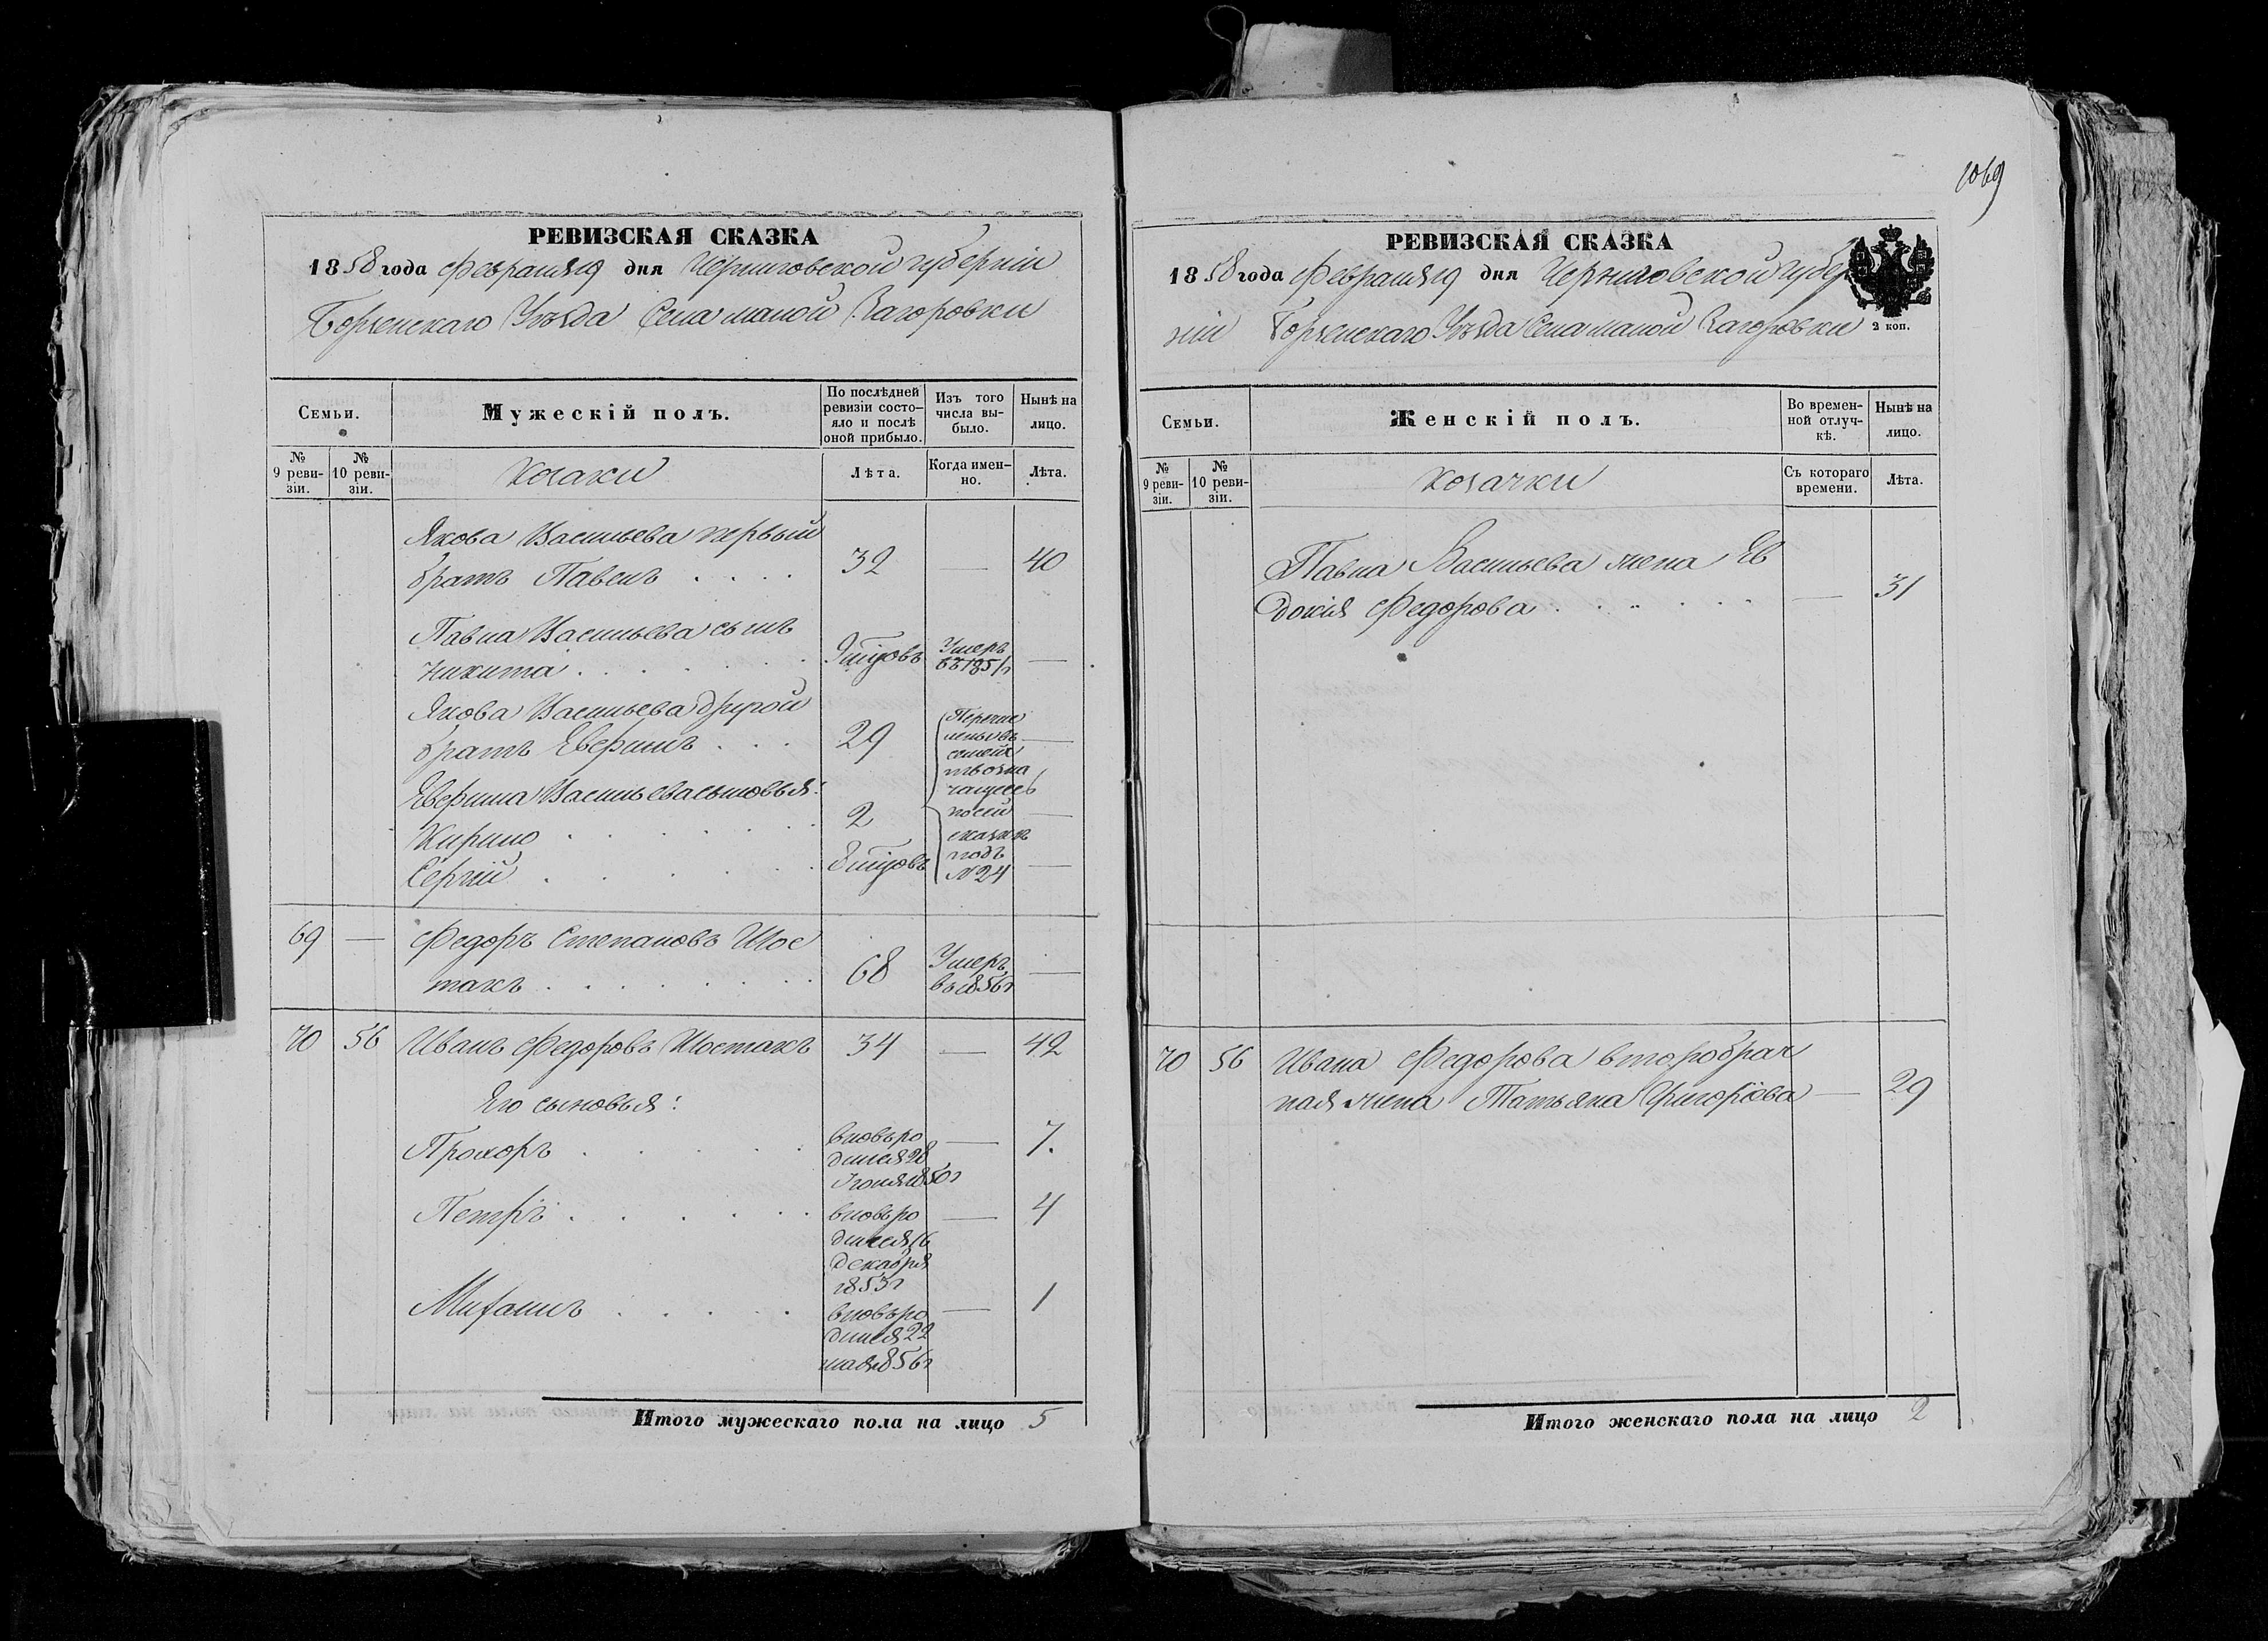 1069
РЕВИЗСКАЯ СКАЗКА
1858 года Февраля 19 дня Черниговской губерніи
Борзенскаго Уѣзда Села малой Загоровки
Семьи.
Мужескій полъ.
По послѣдней ревизіи состо-
яло и послѣ оной прибыло.
Изъ того числа вы-
было.
Нынѣ на лицо.
№ 9 реви-
зіи.
№ 10 реви-
зіи.
козаки
Лѣта.
Когда имен-
но.
Лѣта.
Якова Васильева первый
братъ Павелъ . . . . 32 — 40
Павла Васильева сынъ
Никита . . . . . . Умеръ —
въ 1851г
Якова Васильева другой
братъ Аверимъ . . . 29 —
Перечис
лены въ
семейс
тво зна
чащееся
по сей
сказкѣ
подъ
№ 24
Васильева сыновья:
Кирило . . . . . . 2 —
Сергій . . . . . . —
69 — Федоръ Степановъ Шос
такъ . . . . . . . . 68 Умеръ —
въ 1856г
70 56 Иванъ Федоровъ Шостакъ 34 — 42
Его сыновья:
Прохоръ . . . . . вновь ро — 7.
дился 28
Іюля 1850г
Петръ . . . . . . вновь ро — 4
дился 16
декабря
1853г
Михаилъ . . . . . вновь ро — 1
дился 22
мая 1856г
Итого мужескаго пола на лицо 5
РЕВИЗСКАЯ СКАЗКА
1858 года Февраля 19 дня Черниговской губер
ніи Борзенскаго Уѣзда Села малой Загоровки
2 коп.
Семьи.
Женскій полъ.
Во времен-
ной отлуч-
кѣ.
Нынѣ на лицо.
№ 9 реви-
зіи.
№ 10 реви-
зіи.
козачки
Съ котораго времени.
Лѣта.
Павла Васильева жена Ев
докія Федорова . . . . . . — 31
70 56 Ивана Федорова второбрач
ная жена Татьяна Григоріева — 29
Итого женскаго пола на лицо 2